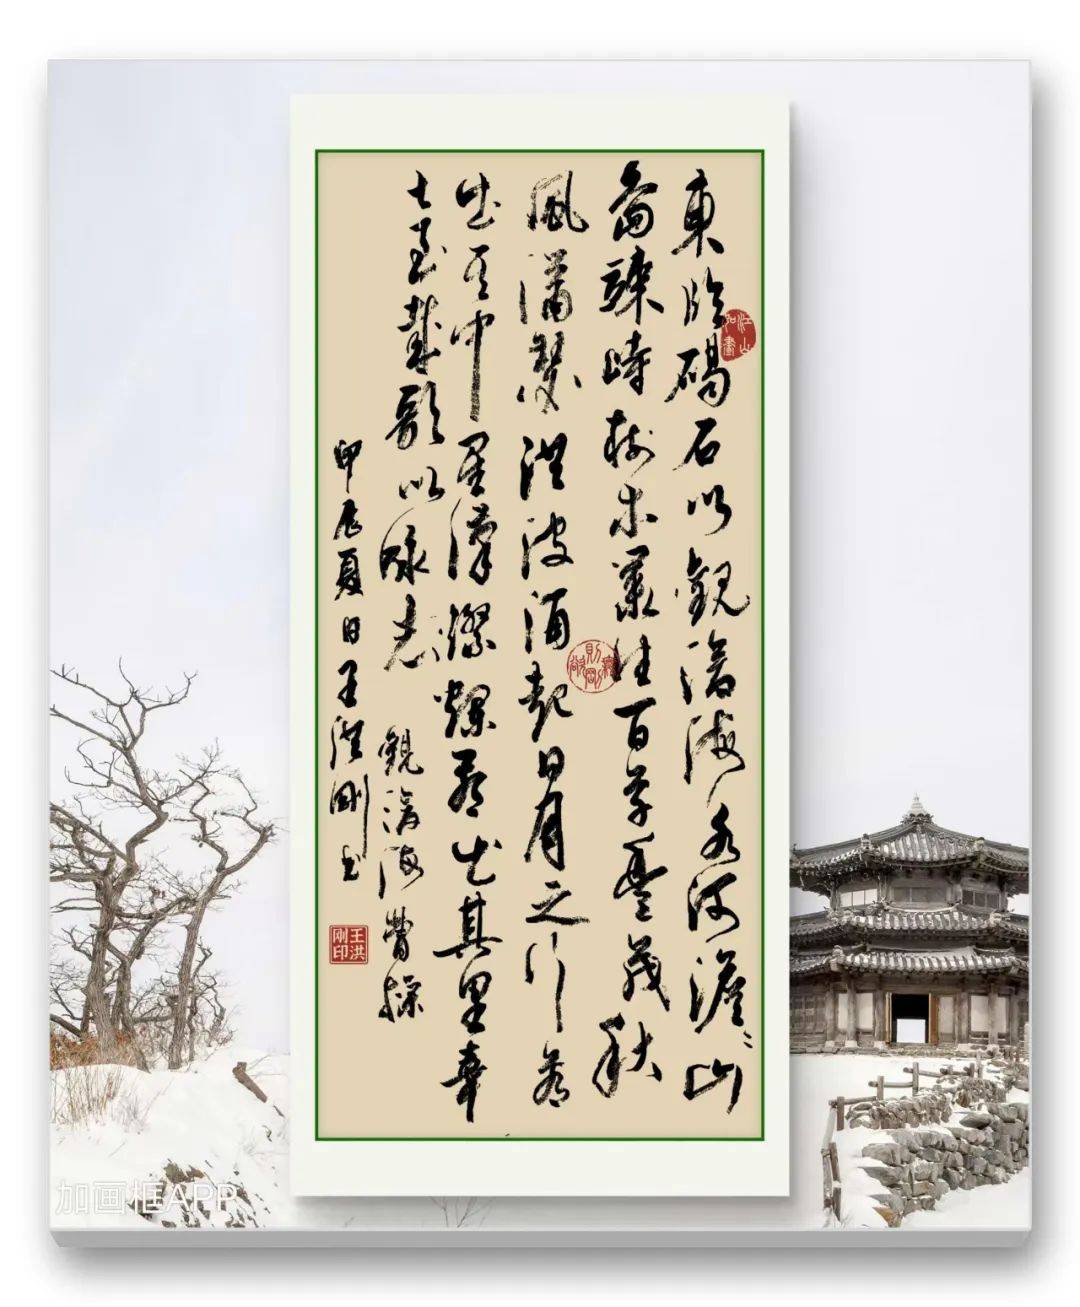 東臨碣石以觀滄海水何澹〻山
島竦峙樹木叢生百草豐茂秋
風瀟瑟洪波涌起日月之行若
出其中星漢燦爛若出其里幸
甚至哉歌以詠志 觀滄海曹操
甲辰夏日王洪剛书
江山如畫
無欲則剛
王洪剛印
加画框APP